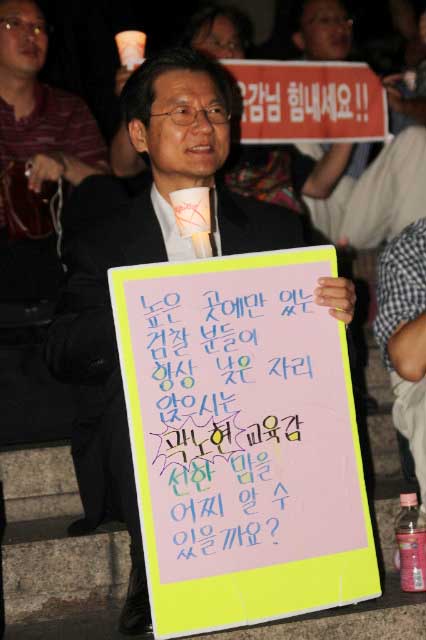 육감님 힘내세요!!
높은 곳에만 있는
검찰 분들이
항상 낮은 자리
앉으시는
곽노현 교육감
선한 맘을
어찌 알 수
있을까요?